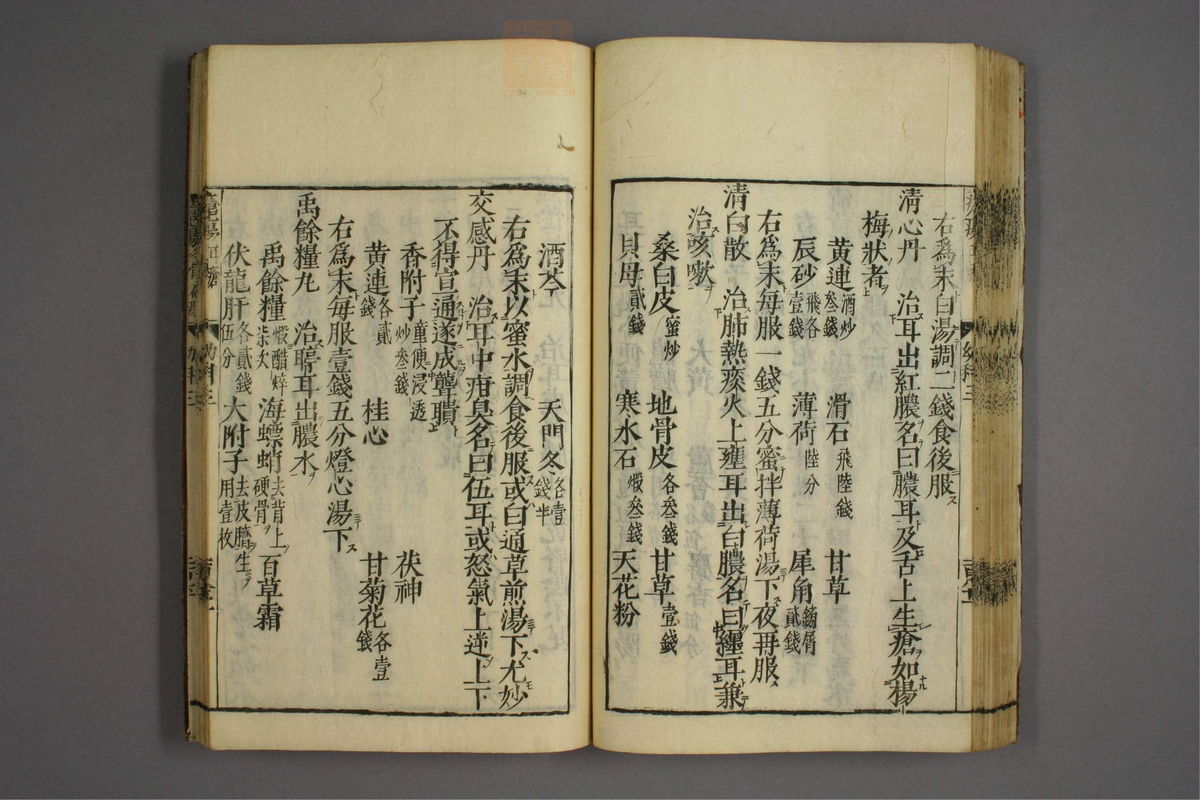 右為末白湯調二錢食後服
清心丹　治耳出紅膿名曰膿耳及舌上生瘡如楊
梅狀者
黄連酒炒叄錢　滑石飛陸錢　甘草
辰砂飛各壹錢　薄荷陸分　犀角鎊屑貳錢
右為末每服一錢五分蜜拌薄荷湯下夜再服
清白散　治肺熱痰火上壅耳出白膿名曰纏耳兼
治咳嗽
桑白皮蜜炒　地骨皮各叄錢　甘草壹錢
貝母貳錢　寒水石煅叄錢　天花粉
酒芩　天門冬各壹錢半
右為末以蜜水調食後服或白通草煎湯下尤妙
交感丹　治耳中疳臭名曰伍耳或怒氣上逆上下
不得宣通遂成聾聵
香附子童便浸透炒叄錢　茯神
黄連各貳錢　桂心　甘菊花各壹錢
右為末每服壹錢五分燈心湯下
禹餘糧丸　治聤耳出膿水
禹餘糧煅醋焠柒次　海螵蛸去背上硬骨　百草霜
伏龍肝各貳錢伍分　大附子去皮臍生用壹枚